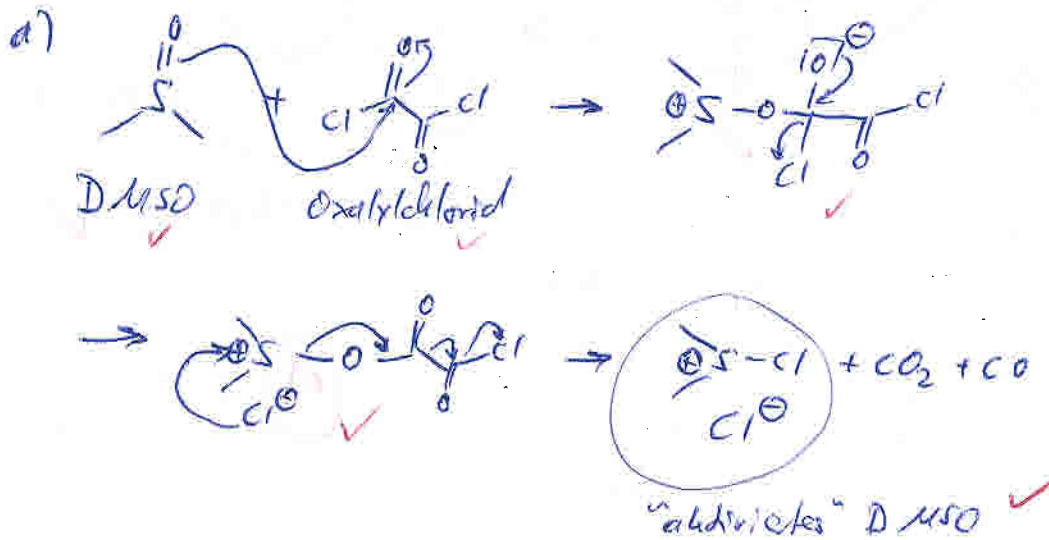 a)
O O Cl Cl S + O → ⊕ S – O – |O| ⊖ Cl Cl O
DMSO Oxalylchlorid
→ ⊕ S – O – O Cl O Cl⊖ → ⊕ S – Cl Cl⊖ + CO2 + CO
"aktiviertes" DMSO